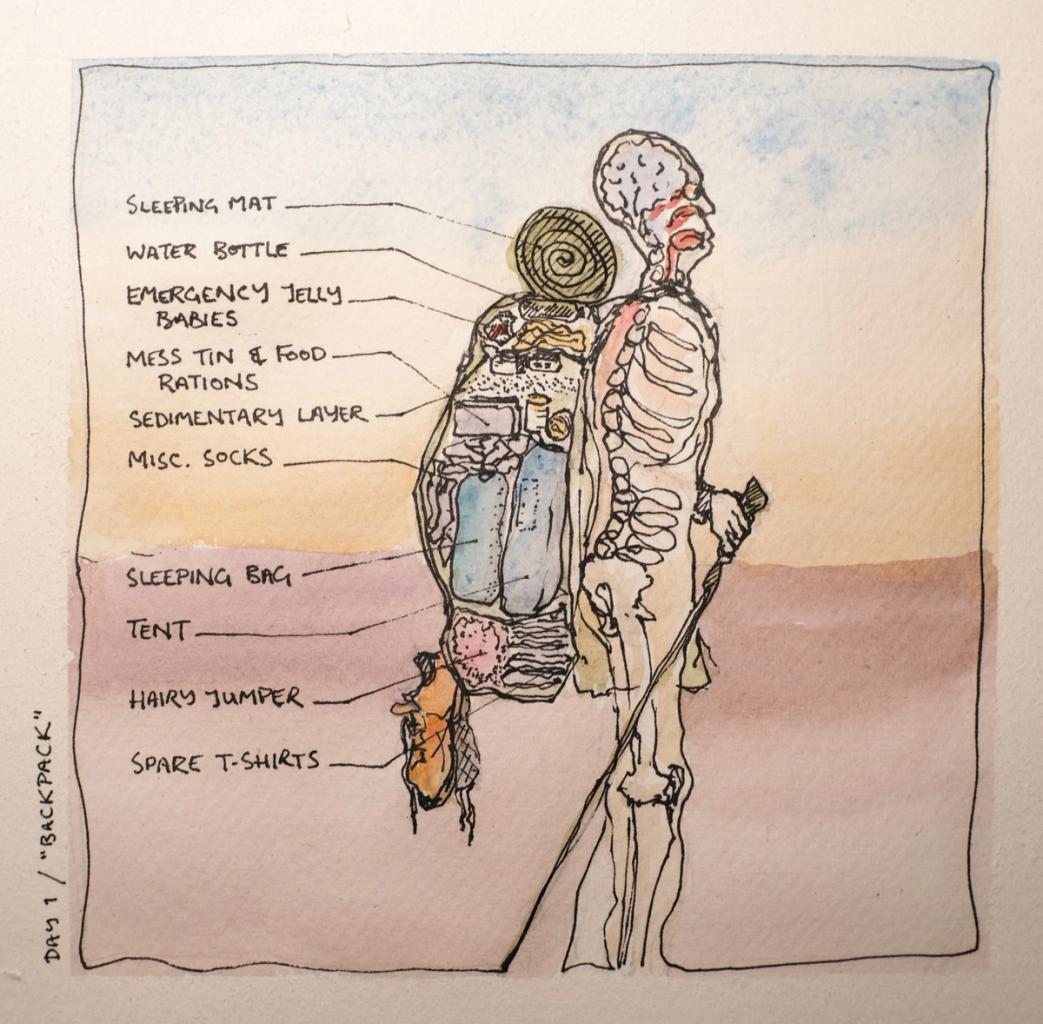 SLEEPING MAT
WATER BOTTLE
EMERGENCY JELLY
BABIES
MESS TIN & FOOD
RATIONS
SEDIMENTARY LAYER
MISC. SOCKS
SLEEPING BAG
TENT
HAIRY JUMPER
SPARE T-SHIRTS
DAY 1 / "BACKPACK"